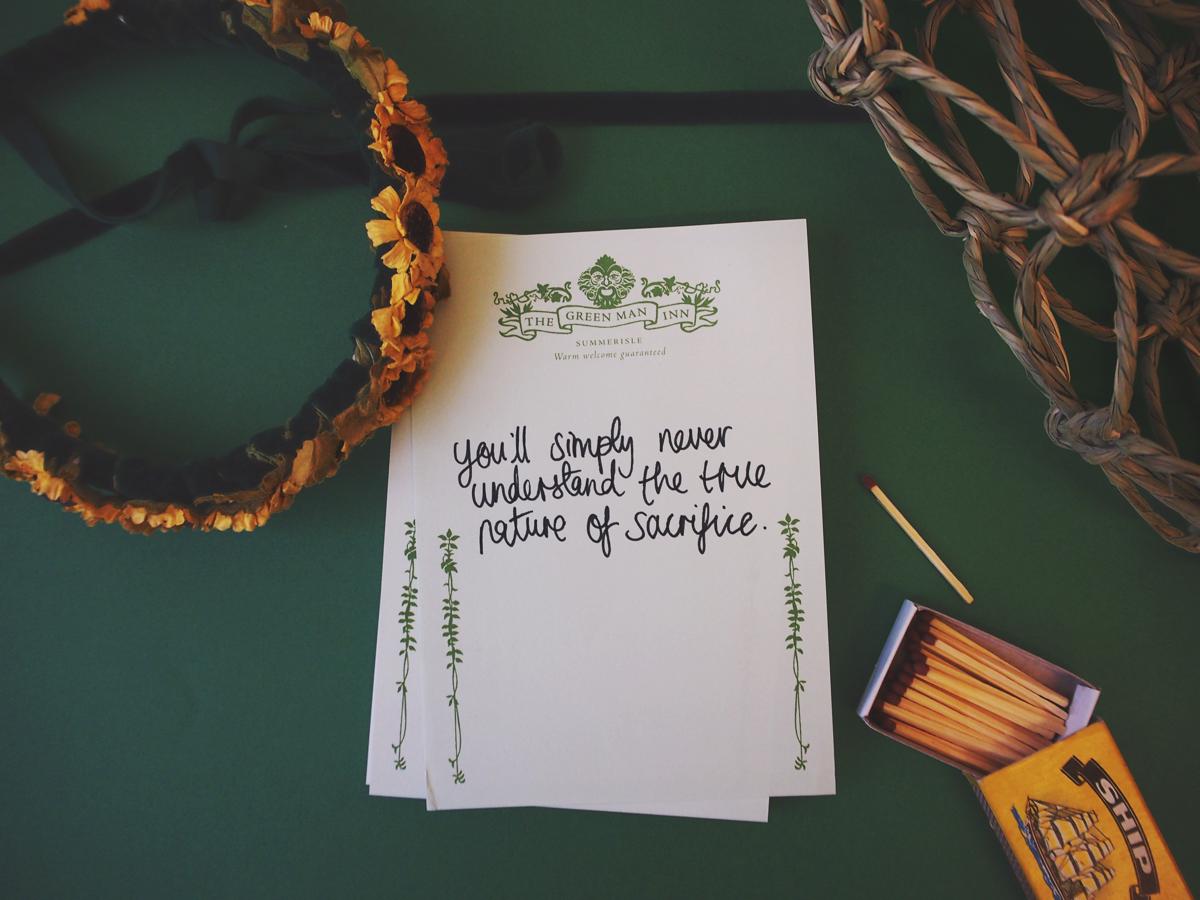 THE GREEN MAN INN
SUMMERISLE
Warm welcome guaranteed
you'll simply never
understand the true
nature of sacrifice.
SHIP